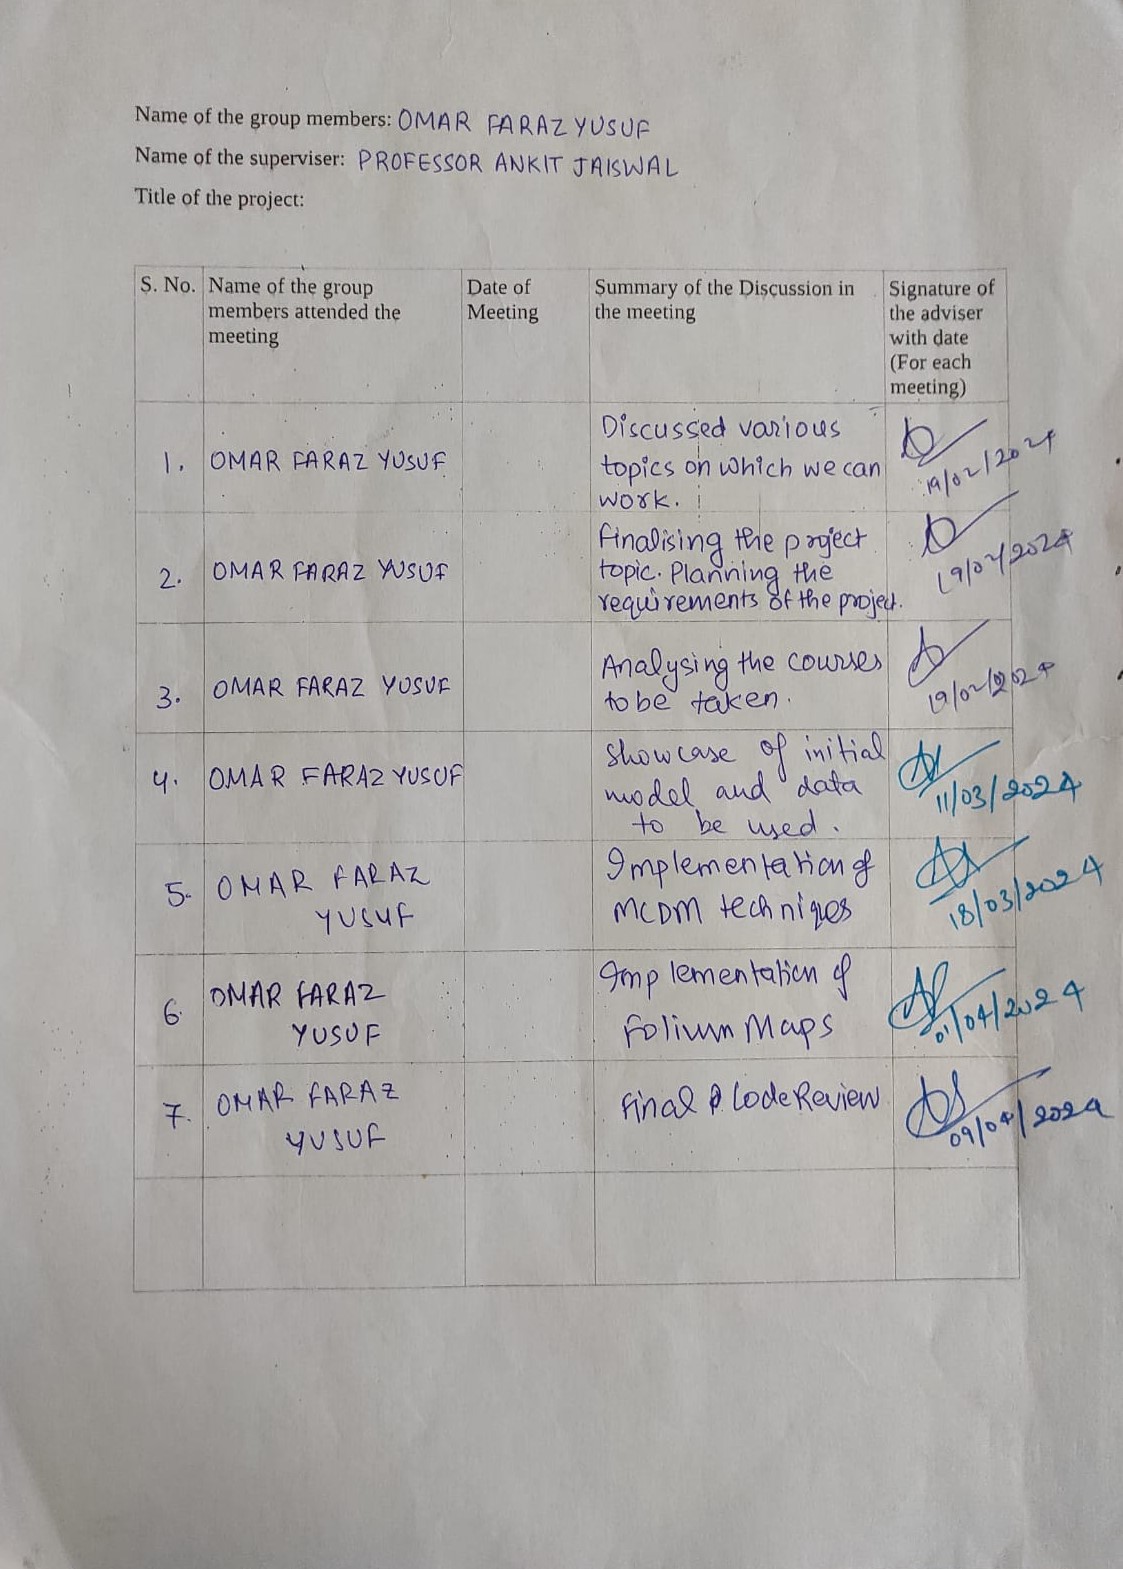 Name of the group members: OMAR FARAZ YUSUF
Name of the superviser: PROFESSOR ANKIT JAISWAL
Title of the project:
S. No.
Name of the group
members attended the
meeting
Date of
Meeting
Summary of the Discussion in
the meeting
Signature of
the adviser
with date
(For each
meeting)
1.
OMAR FARAZ YUSUF
Discussed various
topics on which we can
work.
19/02/2024
2.
OMAR FARAZ YUSUF
Finalising the project
topic. Planning the
requirements of the project.
19/02/2024
3.
OMAR FARAZ YUSUF
Analysing the courses
to be taken.
19/02/2024
4.
OMAR FARAZ YUSUF
Showcase of initial
model and data
to be used.
11/03/2024
5.
OMAR FARAZ
YUSUF
Implementation of
MCDM techniqes
18/03/2024
6.
OMAR FARAZ
YUSUF
Implementation of
Folium Maps
01/04/2024
7.
OMAR FARAZ
YUSUF
Final Code Review
09/04/2024